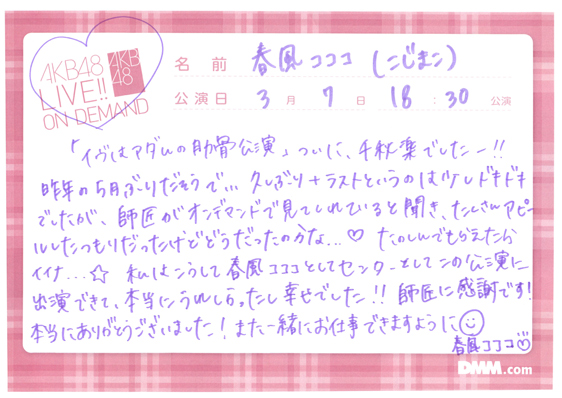 AKB48
LIVE!!
ON DEMAND
AKB
48
名前 春風コココ(こじまこ)
公演日 3月 7日 18:30 公演
「イヴはアダムの肋骨公演」ついに、千秋楽でしたー!!
昨年の5月ぶりだそうで... 久しぶり+ラストというのは少しドキドキ
でしたが、師匠がオンデマンドで見てくれていると聞き、たくさんアピー
ルしたつもりだったけどどうだったのかな...♡ たのしんでもらえたなら
イイナ...☆ 私はこうして春風コココとしてセンターとしてこの公演に
出演できて、本当にうれしかったし幸せでした!! 師匠に感謝です!
本当にありがとうございました! また一緒にお仕事できますように☺
春風コココ♡
DMM.com